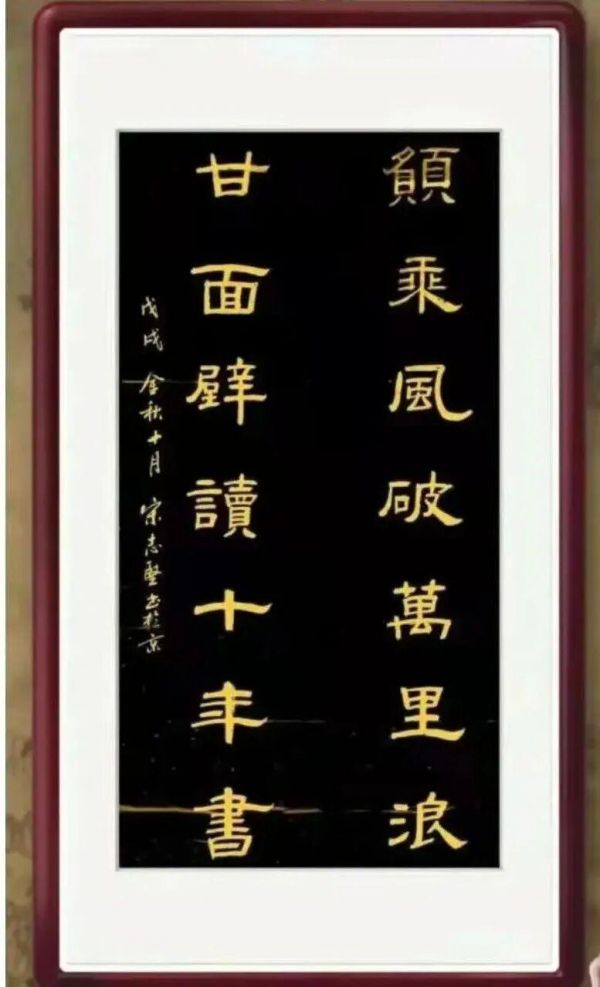 願乘風破萬里浪
甘面壁讀十年書
戊戌 金秋十月 宋志堅书於京